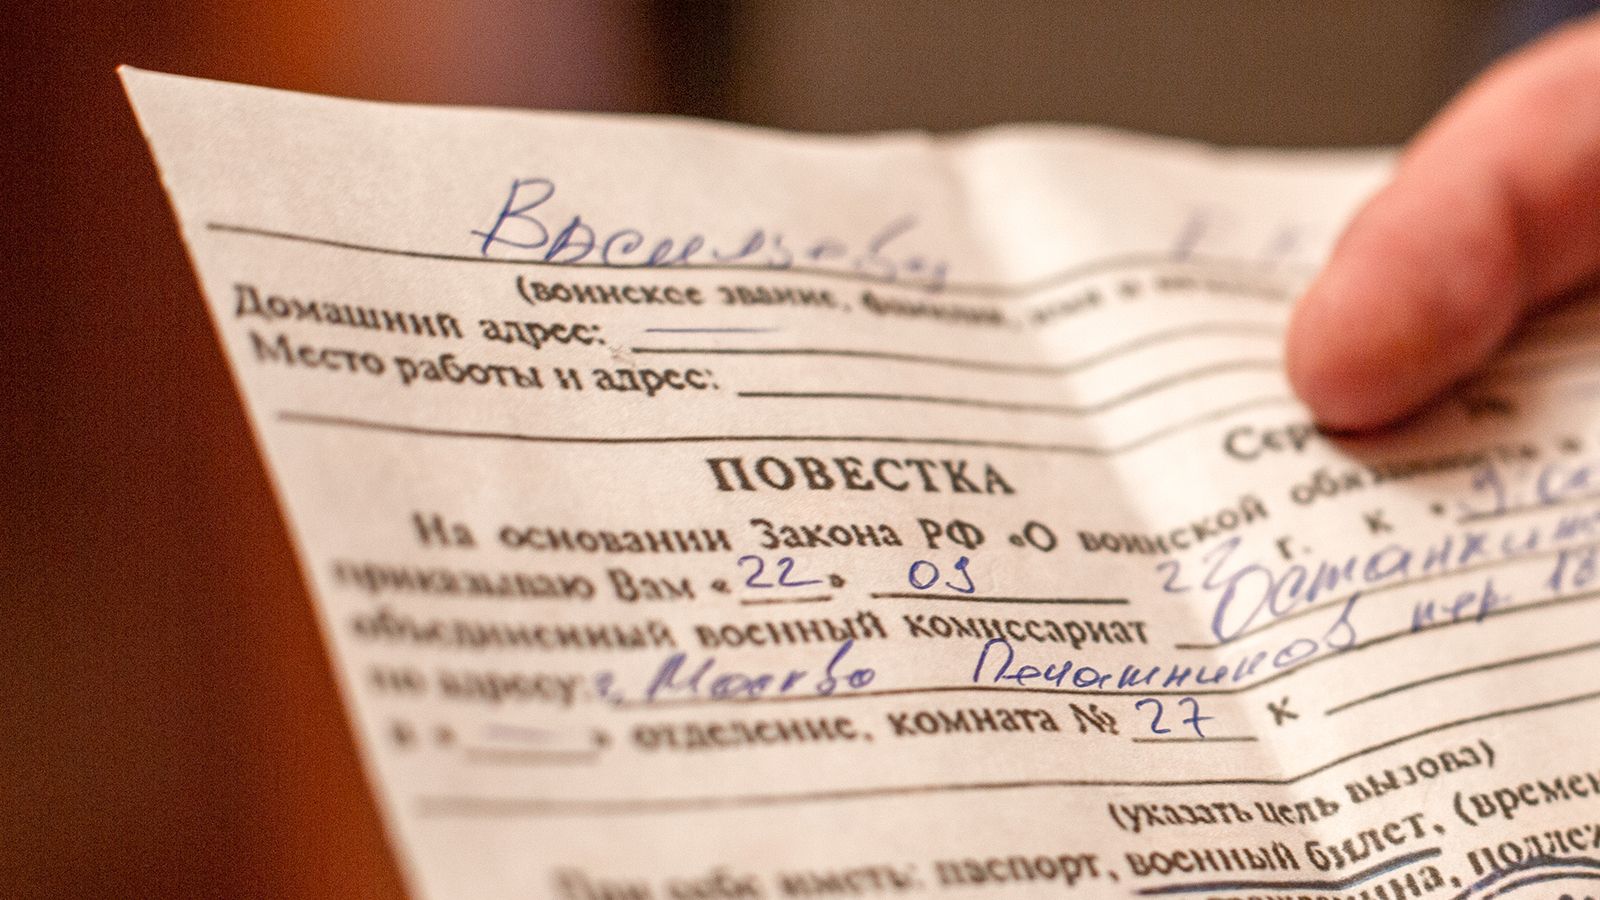 Васильеву
(воинское звание, фамилия, имя и
Домашний адрес:
Место работы и адрес:
ПОВЕСТКА
На основании Закона РФ «О воинской
приказываю Вам «22» 09 22 г. к
объединенный военный комиссариат
по адресу: г. Москва Печатников пер. 13
отделение, комната № 27 к
(указать цель вызова)
При себе иметь: паспорт, военный билет,